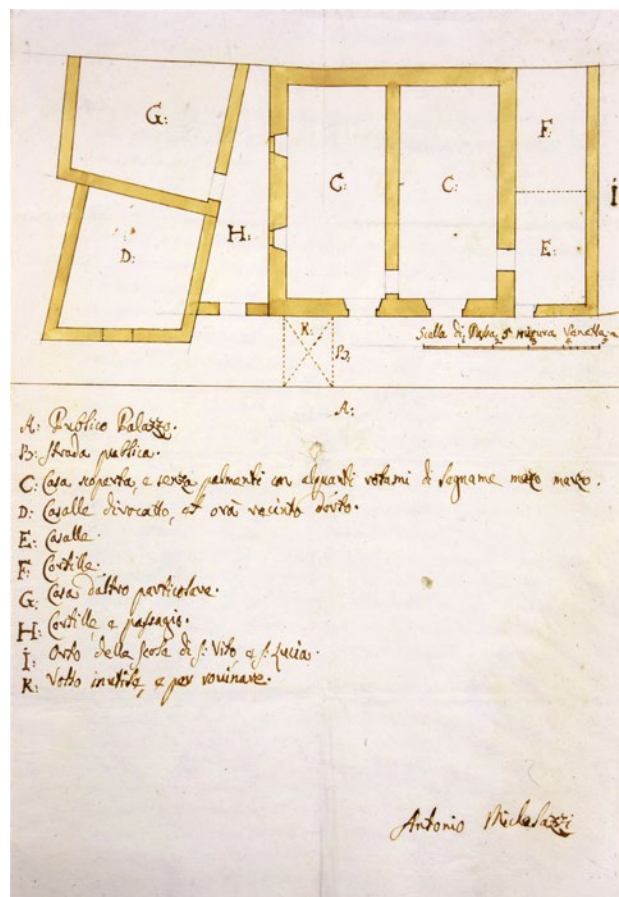 G:
F:
C:
C:
I
H:
D:
E:
K:
B:
Scalla di Passa 5 misura Veneta
A:
A: Publico Palazzo.
B: Strada publica.
C: Casa scoperta, e senza palmenti con alquanti rotami di legname mezo marzo.
D: Casalle divocatto, et ora
E: Casalle.
F: Cortille.
G: Casa d'altro particolare.
H: Cortille, e passagio.
I: Orto della Scola di S: Vito e S: Lucia.
K: Volto inutile, e per rovinare.
Antonio Michelazzi